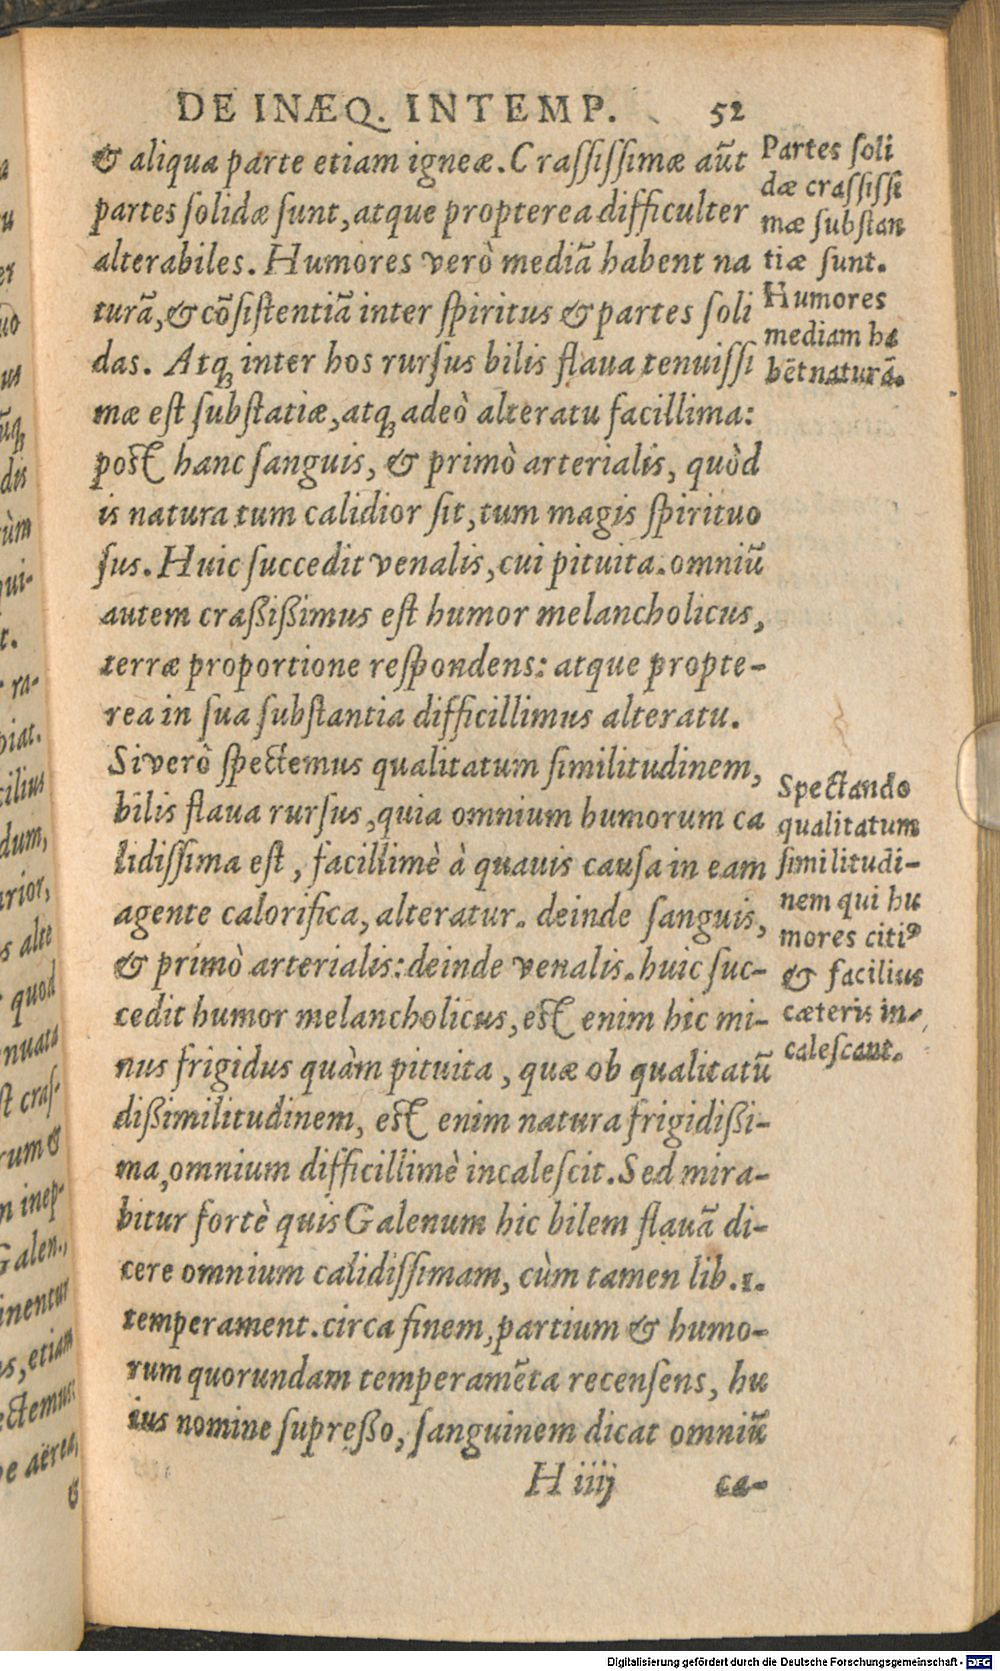 DE INÆQ. INTEMP. 52
& aliqua parte etiam igneæ. Craſſiſſimæ aūt
partes ſolidæ ſunt, atque propterea difficulter
alterabiles. Humores verò mediā habent na
turā, & cōſiſtentiā inter ſpiritus & partes ſoli
das. Atq; inter hos rurſus bilis flaua tenuiſſi
mæ eſt ſubſtatiæ, atq; adeò alteratu facillima:
post hanc ſanguis, & primò arterialis, quòd
is natura tum calidior ſit, tum magis ſpirituo
ſus. Huic ſuccedit venalis, cui pituita. omniū
autem craßißimus eſt humor melancholicus,
terræ proportione reſpondens: atque propte-
rea in ſua ſubſtantia difficillimus alteratu.
Si verò ſpectemus qualitatum ſimilitudinem,
bilis flaua rurſus, quia omnium humorum ca
lidiſſima eſt, facillimè à quauis cauſa in eam
agente calorifica, alteratur. deinde ſanguis,
& primò arterialis: deinde venalis. huic ſuc-
cedit humor melancholicus, est enim hic mi-
nus frigidus quàm pituita, quæ ob qualitatū
dißimilitudinem, est enim natura frigidißi-
ma, omnium difficillimè incaleſcit. Sed mira-
bitur fortè quis Galenum hic bilem flauā di-
cere omnium calidiſſimam, cùm tamen lib. 1.
temperament. circa finem, partium & humo-
rum quorundam temperamēta recenſens, hu
ius nomine ſupreßo, ſanguinem dicat omniū
H iiij ca-
Partes ſoli
dæ craſſiſſi
mæ ſubſtan
tiæ ſunt.
Humores
mediam ha
bēt naturā.
Spectando
qualitatum
ſimilitudi-
nem qui hu
mores citiꝰ
& facilius
cæteris in-
caleſcant.
Digitalisierung gefördert durch die Deutsche Forschungsgemeinschaft - DFG